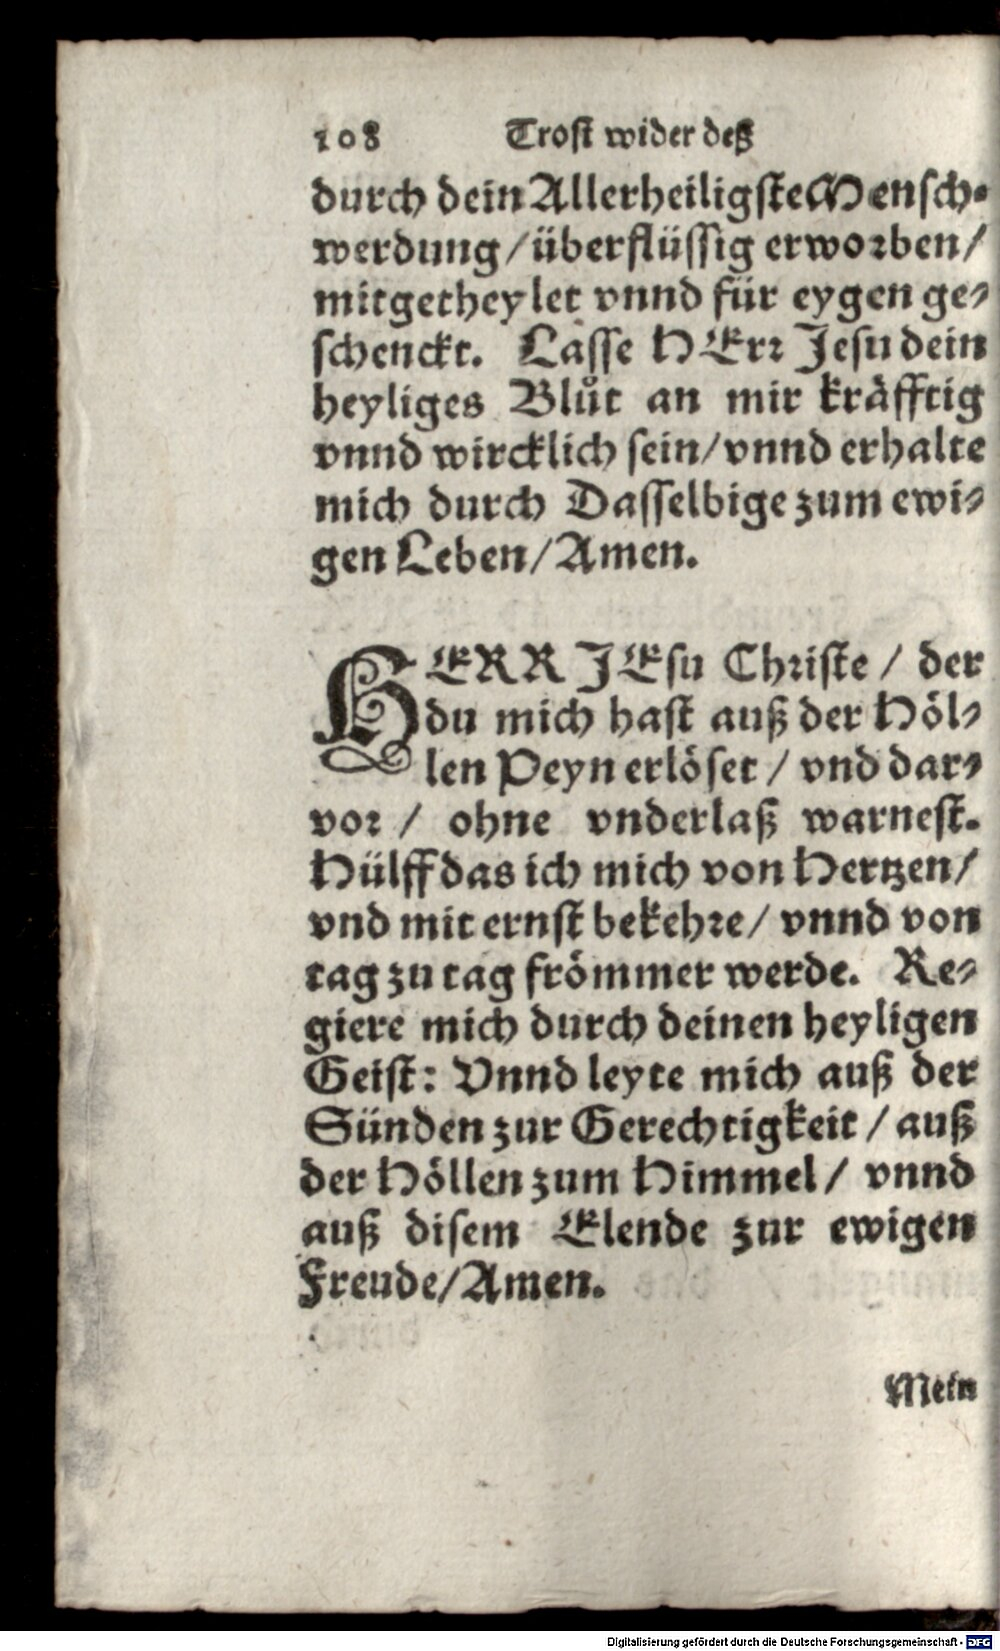 108 Trost wider deß
durch dein Allerheiligste Mensch-
werdung / überflüssig erworben /
mitgetheylet vnnd für eygen ge-
schenckt. Lasse HErr Jesu dein
heyliges Blůt an mir kräfftig
vnnd wircklich sein / vnnd erhalte
mich durch Dasselbige zum ewi-
gen Leben / Amen.
HERR JEsu Christe / der
du mich hast auß der Höl-
len Peyn erlöset / vnd dar-
vor / ohne vnderlaß warnest.
Hülff das ich mich von Hertzen /
vnd mit ernst bekehre / vnnd von
tag zu tag frömmer werde. Re-
giere mich durch deinen heyligen
Geist: Vnnd leyte mich auß der
Sünden zur Gerechtigkeit / auß
der Höllen zum Himmel / vnnd
auß disem Elende zur ewigen
Freude / Amen.
Mein
Digitalisierung gefördert durch die Deutsche Forschungsgemeinschaft - DFG